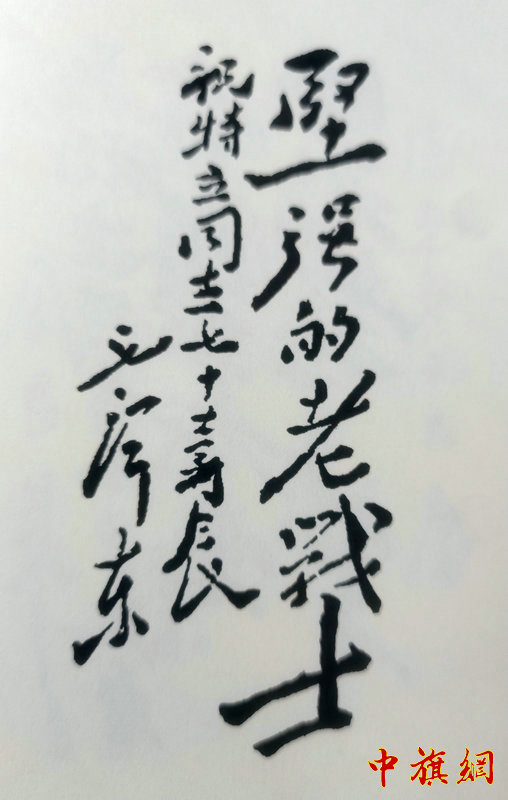 堅强的老戰士
祝特立同志七十大寿辰
毛泽东
中旗網